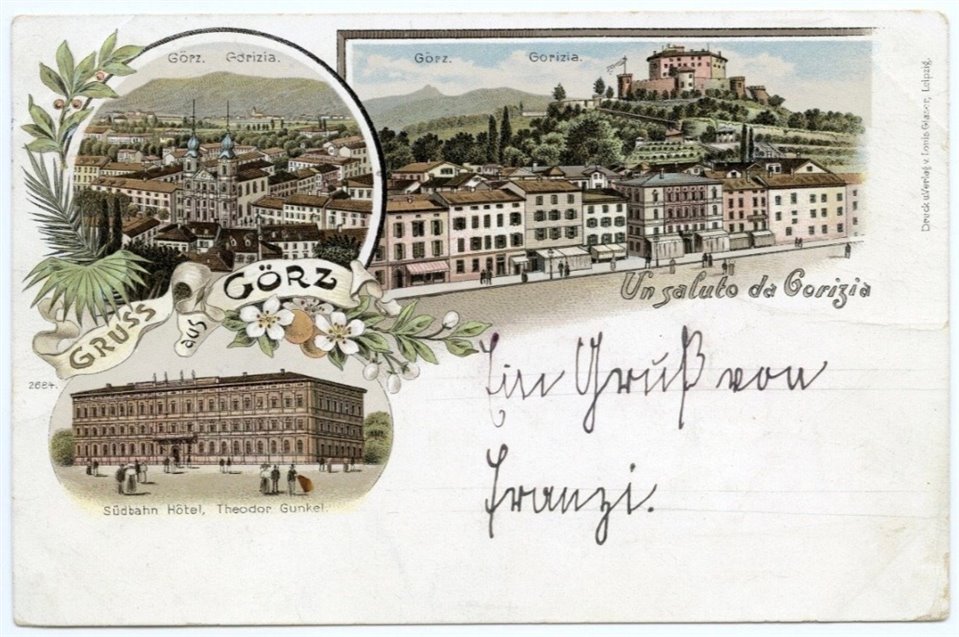 Görz. Gorizia.
Görz. Gorizia.
Druck u. Verlag v. Louis Glaser, Leipzig.
GRUSS aus GÖRZ
Un saluto da Gorizia
2684.
Ein Gruß von
Franzi.
Südbahn Hôtel, Theodor Gunkel.